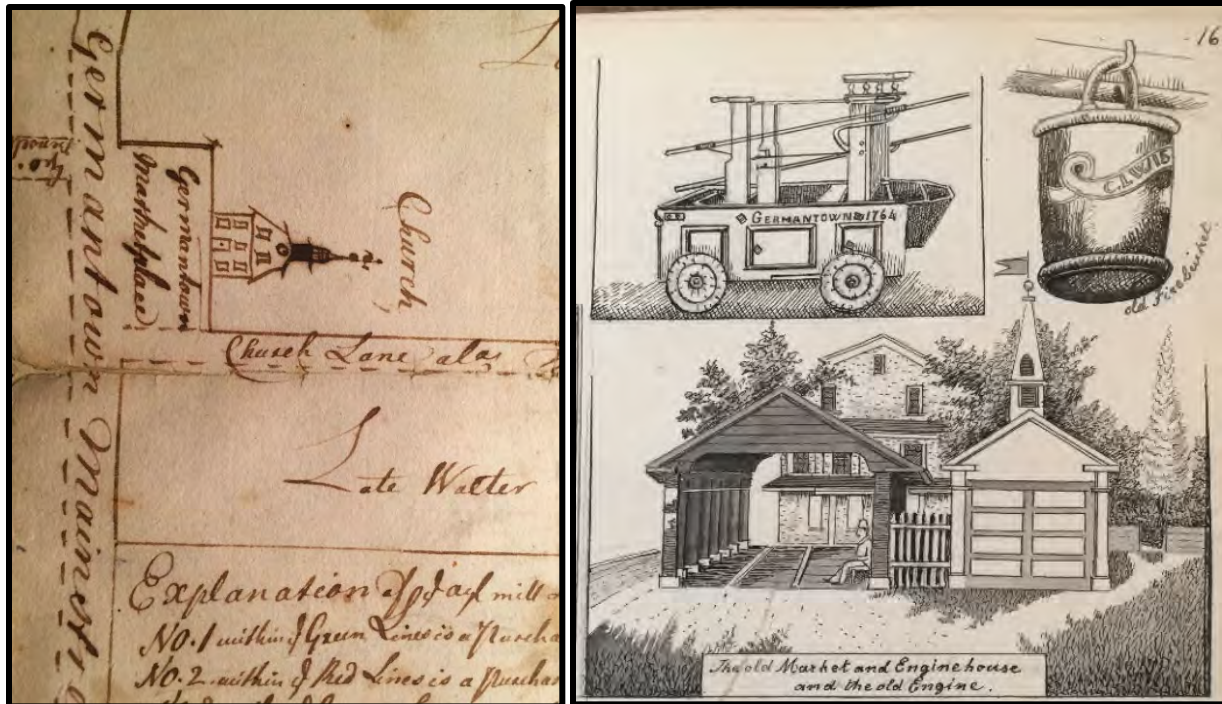 Germantown Main
Germantown
Marketplace
Church
Church Lane alas
Late Walter
Explanation of mill
NO. 1 within Green Lines is a Purcha
NO. 2 within Red Lines is a Purchas
16
GERMANTOWN 1764
C.L.WIS
old Firebucket
The old Market and Enginehouse
and the old Engine.